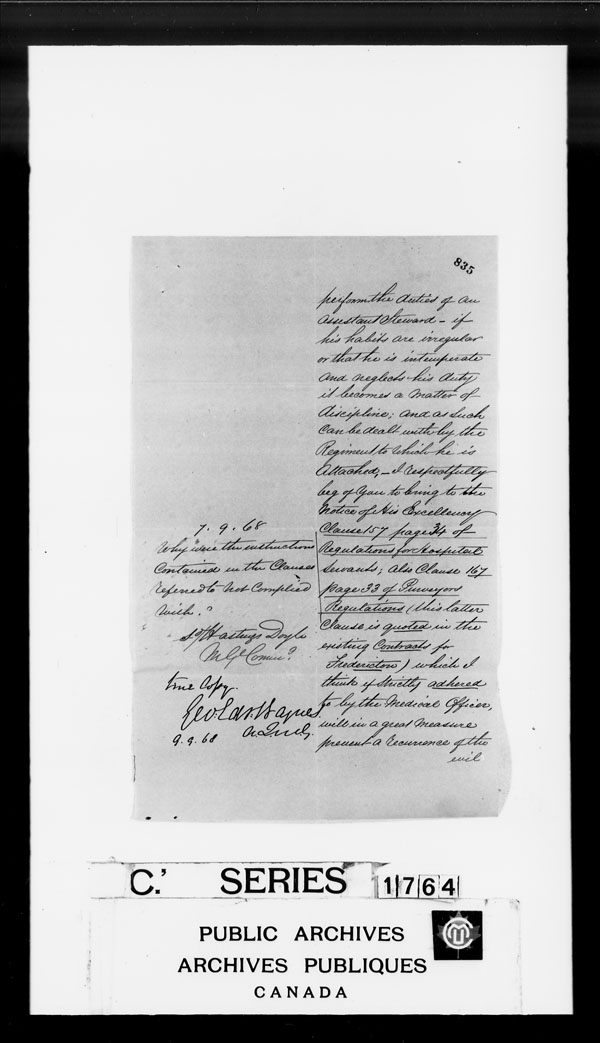 835
perform the duties of an
Assistant Steward - if
his habits are irregular
or that he is intemperate
and neglects his duty
it becomes a matter of
discipline; and as such
can be dealt with by the
Regiment to which he is
Attached, - I respectfully
beg of you to bring to the
notice of His Excellency
Clause 157 page 34 of
Regulations for Hospital
Servants; also Clause 167
page 33 of Purveyors
Regulations (this latter
Clause is quoted in the
existing Contracts for
Fredericton) which I
think if strictly adhered
to by the Medical Officer,
will in a great measure
prevent a recurrence of the
evil
7. 9. 68
"Why were the instructions
Contained in the Clauses
referred to not Complied
with."
Hastings Doyle
M. Gl Comm.
true Copy.
9. 9. 68
C.' SERIES 1764
PUBLIC ARCHIVES
ARCHIVES PUBLIQUES
CANADA